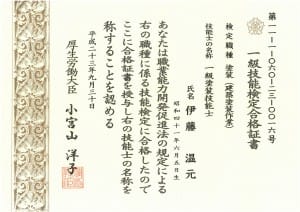 第一一一-一〇六〇-二三-一〇〇一六号
一級技能検定合格証書
検定職種 塗装(建築塗装作業)
技能士の名称 一級塗装技能士
氏名 伊藤 温元
昭和四十一年六月五日生
あなたは職業能力開発促進法の規定による
右の職種に係る技能検定に合格したので
ここに合格証書を授与し右の技能士の名称を
称することを認める
平成二十三年九月三十日
厚生労働大臣 小宮山 洋子